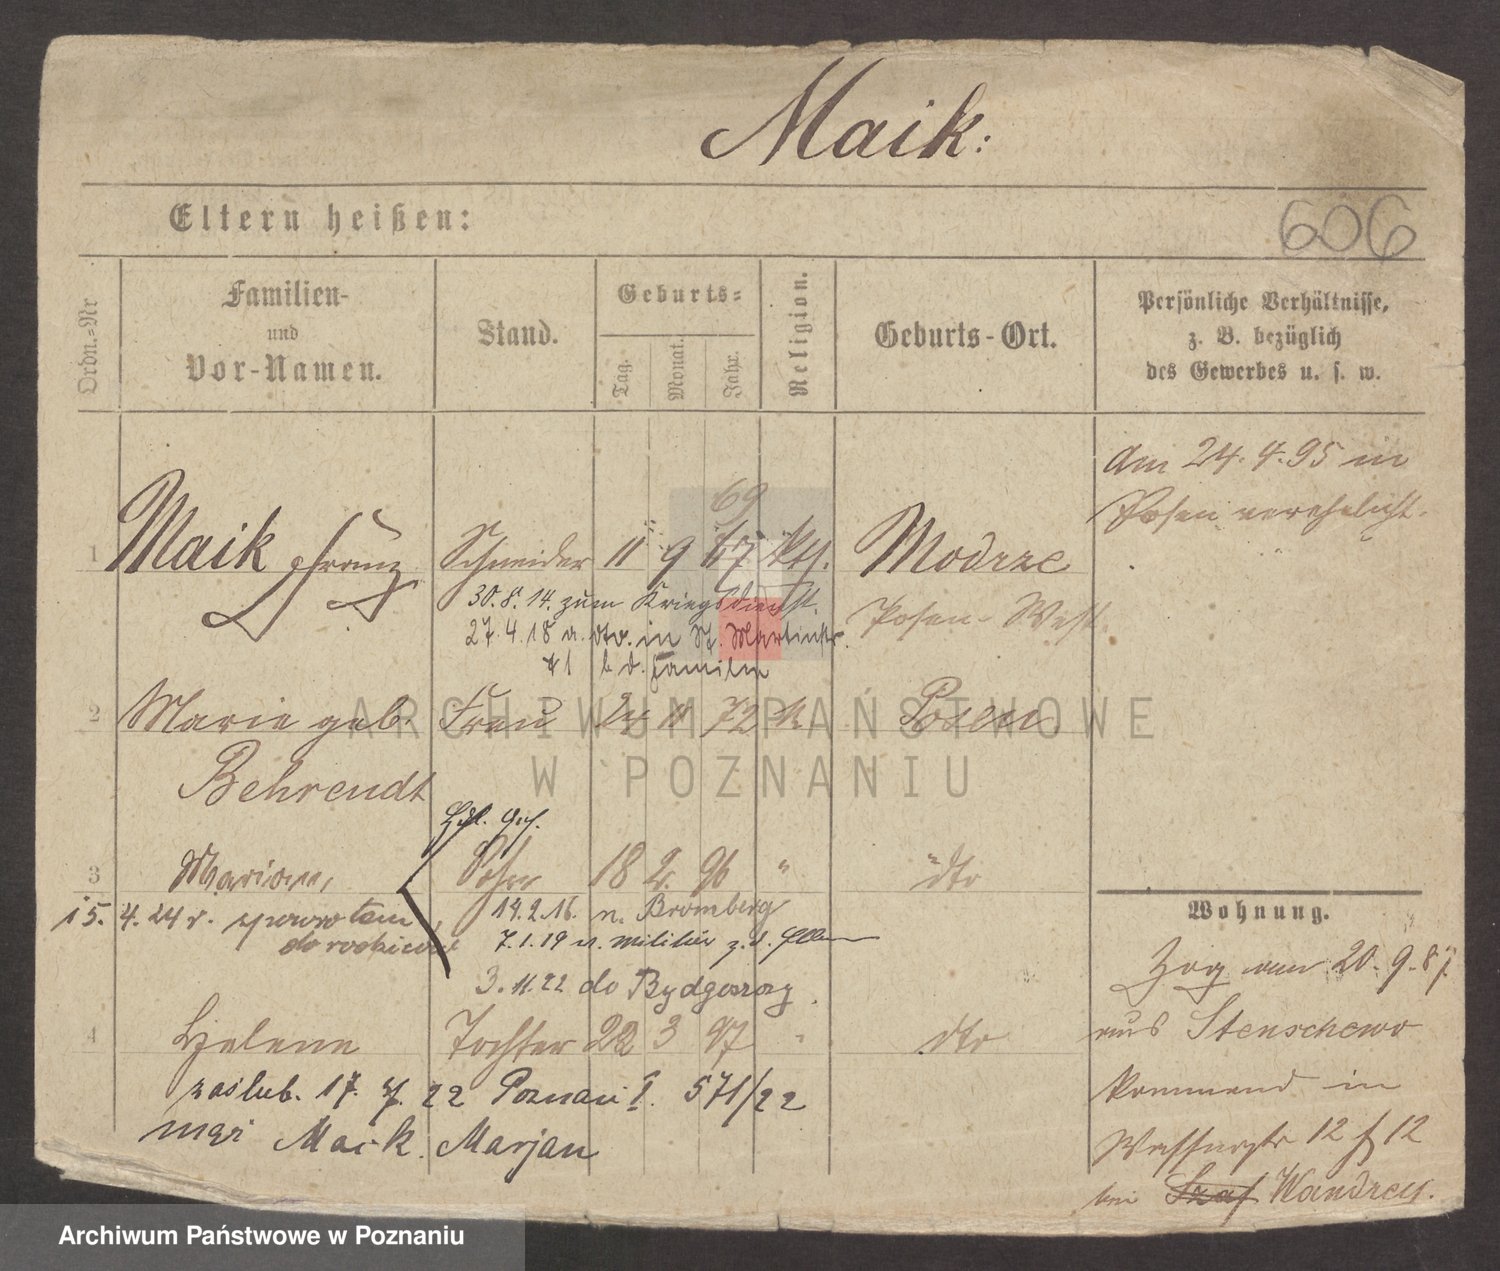 Maik:
606
Eltern heißen:
Ordn.-Nr
Familien-
und
Vor-Namen.
Stand.
Geburts-
Tag.
Monat.
Jahr.
Religion.
Geburts-Ort.
Persönliche Verhältnisse,
z. B. bezüglich
des Gewerbes u. s. w.
am 24. 4. 95 in
Posen verehelicht.
69
1 Maik Franz Schneider 11 9 67 kth. Modrze
30. 8. 14. zum Kriegsdienst.
Posen-West
27. 4. 18 a. dto. in St. Martinstr.
41 b. d. Familie
2 Marie geb. Frau 24 11 72 k Posen
Behrendt
3 Marian, Sohn 18 2. 96 " dto
15. 4. 24 r. zpowrotem
14. 2. 16. n. Bromberg
do rodziców
7. 1. 19 v. Militär z. d. Eltern
3. 11. 22 do Bydgoszczy
4 Helene Tochter 22 3 97 " dto
zaślub. 17. 7. 22 Poznań I. 571/22
mąż Maik Marjan
Wohnung.
Zog am 20. 9. 87
aus Stenschewo
kommend in
Wasserstr 12 12
bei Szaf Wandrey.
ARCHIWUM PAŃSTWOWE
W POZNANIU
Archiwum Państwowe w Poznaniu